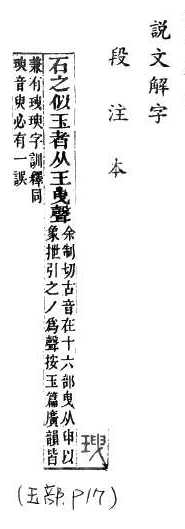 說文解字
段注本
石之似玉者从王曳聲
余制切古音在十六部曳从申以
象抴引之ノ爲聲按玉篇廣韻皆
兼有字訓釋同
音臾必有一誤
(玉部.P17)